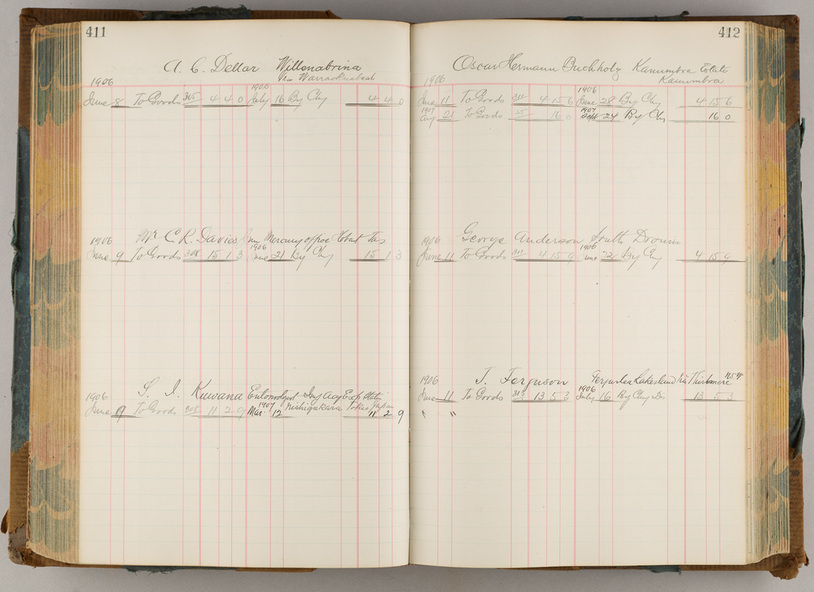 411
A. C. Dellar Willonabrina
Via Warra
1906
June 8 To Goods 305 4 4 0 July 16 By Chq 4 4 0
1906
Mr C. R. Davies Mercury office Hobart Tas
1906 1906
June 9 To Goods 308 15 1 3 June 21 By Chq 15 1 3
S. I. Kuwana Entomologist Imp Agr Exp Stn
1906 1907 Nishigahara Tokio Japan
June 9 To Goods 308 11 2 9 Mar 12 11 2 9
412
Oscar Hermann Buchholz Kanumbra Estate
Kanumbra
1906 1906
June 11 To Goods 4 15 6 June 28 By Chq 4 15 6
1907 1907
Aug 21 To Goods 16 0 24 By Chq 16 0
George Anderson South
1906 1906
June 11 To Goods 4 15 9 June 21 By Chq 4 15 9
J. Ferguson Lakesland Via Thirlmere NSW
1906 1906
June 11 To Goods 13 5 3 July 16 By Chq 13 5 3
" "